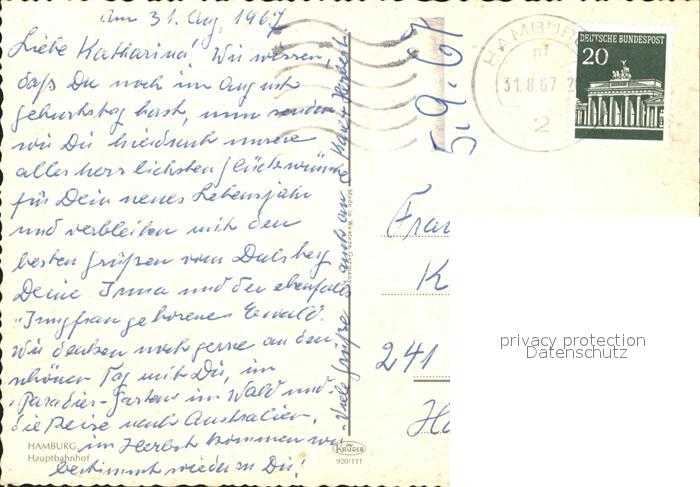 Am 31. Aug. 1967
Liebe Katharina! Wir wissen,
daß Du noch im August
Geburtstag hast, nun senden
wir Dir hiedurch unsere
allerherzlichsten Glückwünsche
für Dein neues Lebensjahr
und verbleiben mit den
besten Grüßen vom Dulsberg
Deine Irma und der ebenfalls
"Jungfrau geborene" Ewald.
Wir denken noch gerne an den
schönen Tag mit Dir, im
"Paradies-Garten" im Wald und
die Reise nach Australien,
im Herbst kommen wir
bestimmt wieder zu Dir!
Viele Grüße auch an
HAMBURG
Hauptbahnhof
KRÜGER
920/111
5.9.67
HAMBURG
31.8.67
2
DEUTSCHE BUNDESPOST
20
Frau
K
241
privacy protection
Datenschutz